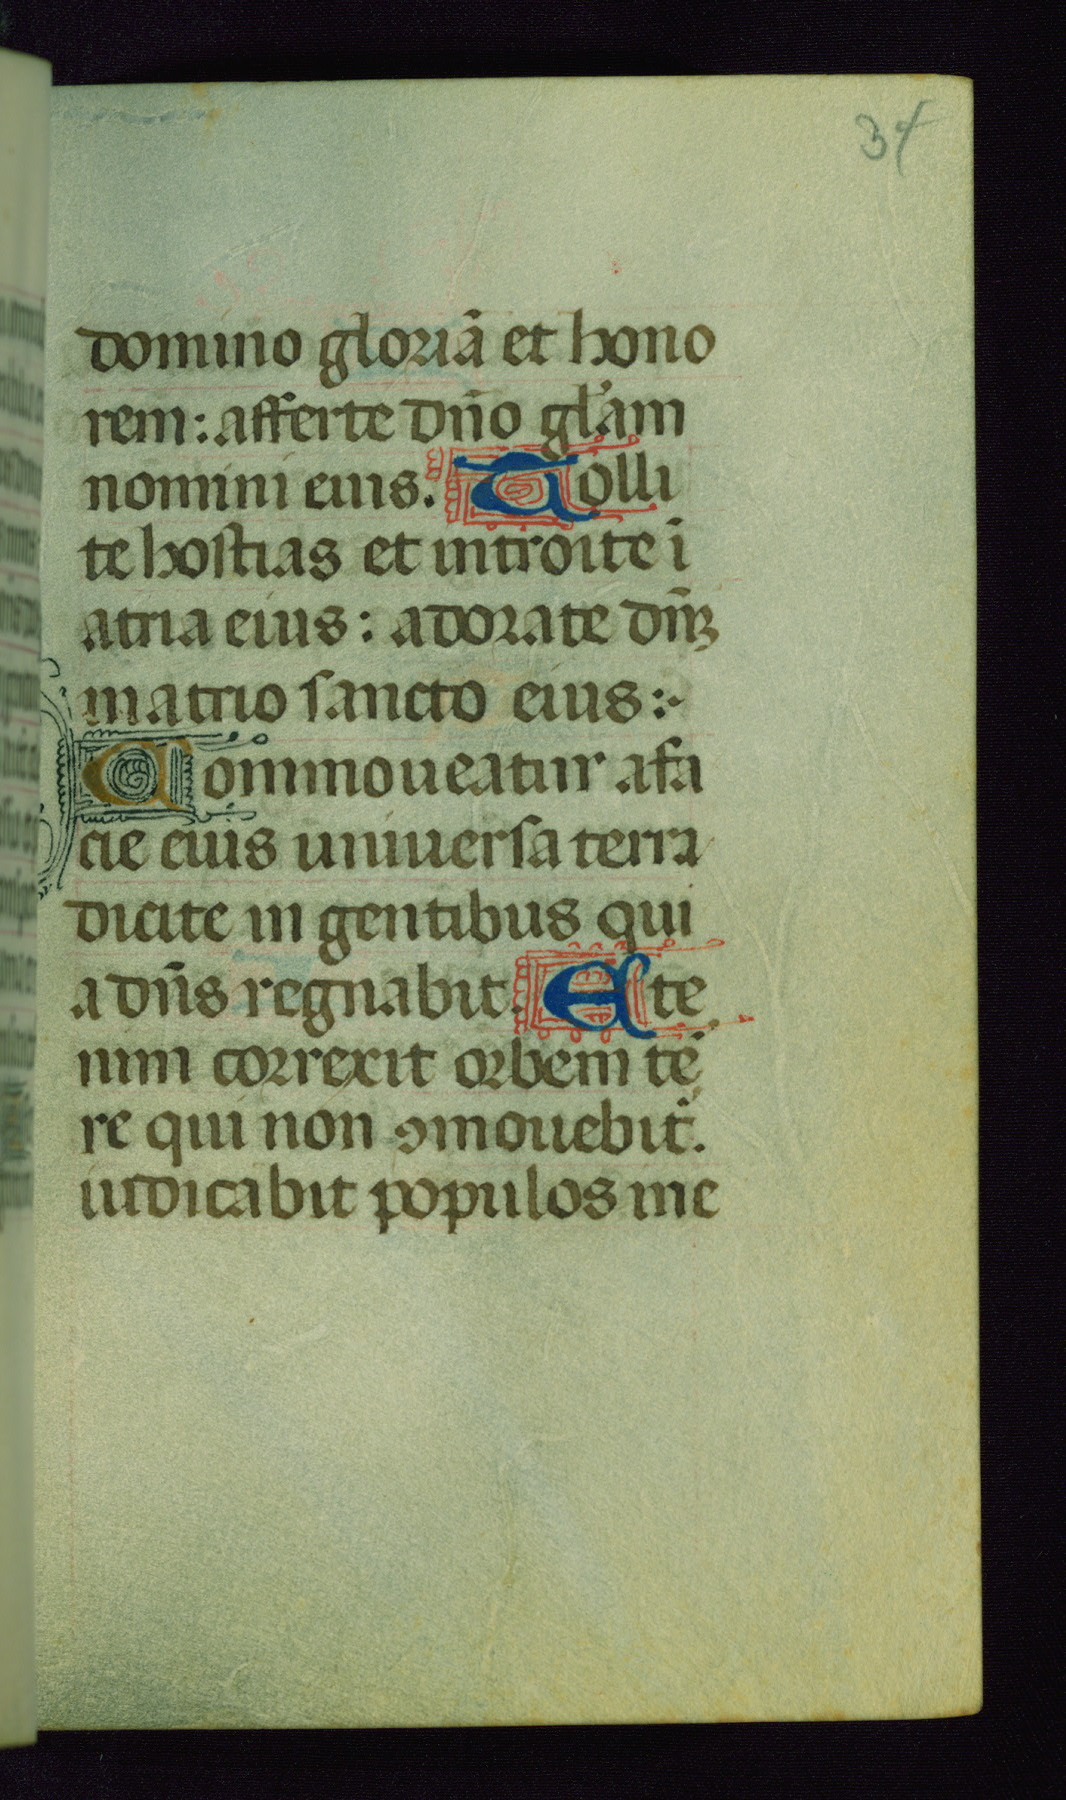 34
domino gloriā et hono
rem: afferte dn̄o gl̄am
nomini eius. Tolli
te hostias et introite ī
atria eius: adorate dn̄ꝫ
in atrio sancto eius:
Commoueatur a fa
cie eius uniuersa terra
dicite in gentibus qui
a dn̄s regnabit. Ete
nim correxit orbem te
re qui non ꝯmouebit᷑.
iudicabit populos in e